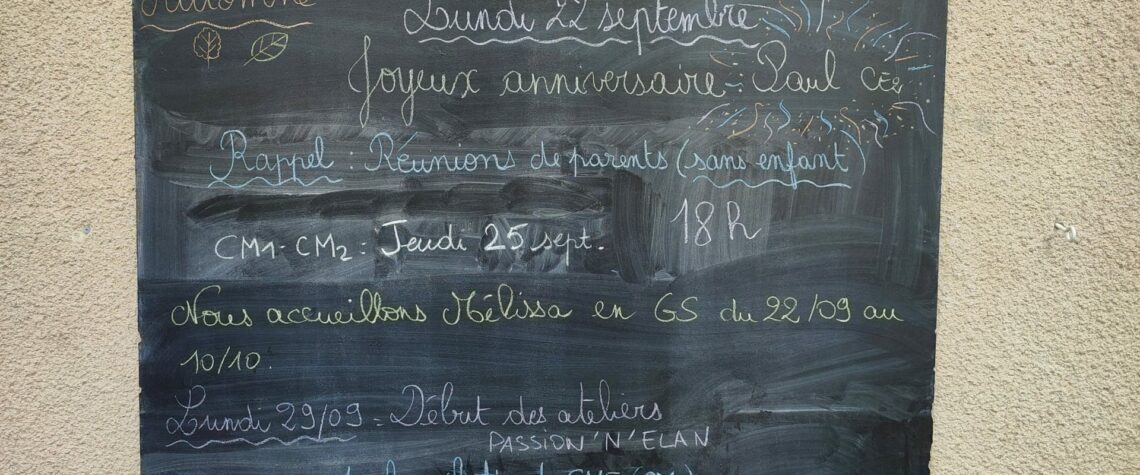 Automne
Lundi 22 septembre
Joyeux anniversaire : Paul CE2
Rappel : Réunions de parents (sans enfant)
18h
CM1-CM2 : Jeudi 25 sept.
Nous accueillons Mélissa en GS du 22/09 au
10/10.
Lundi 29/09 = Début des ateliers
PASSION'N'ELAN